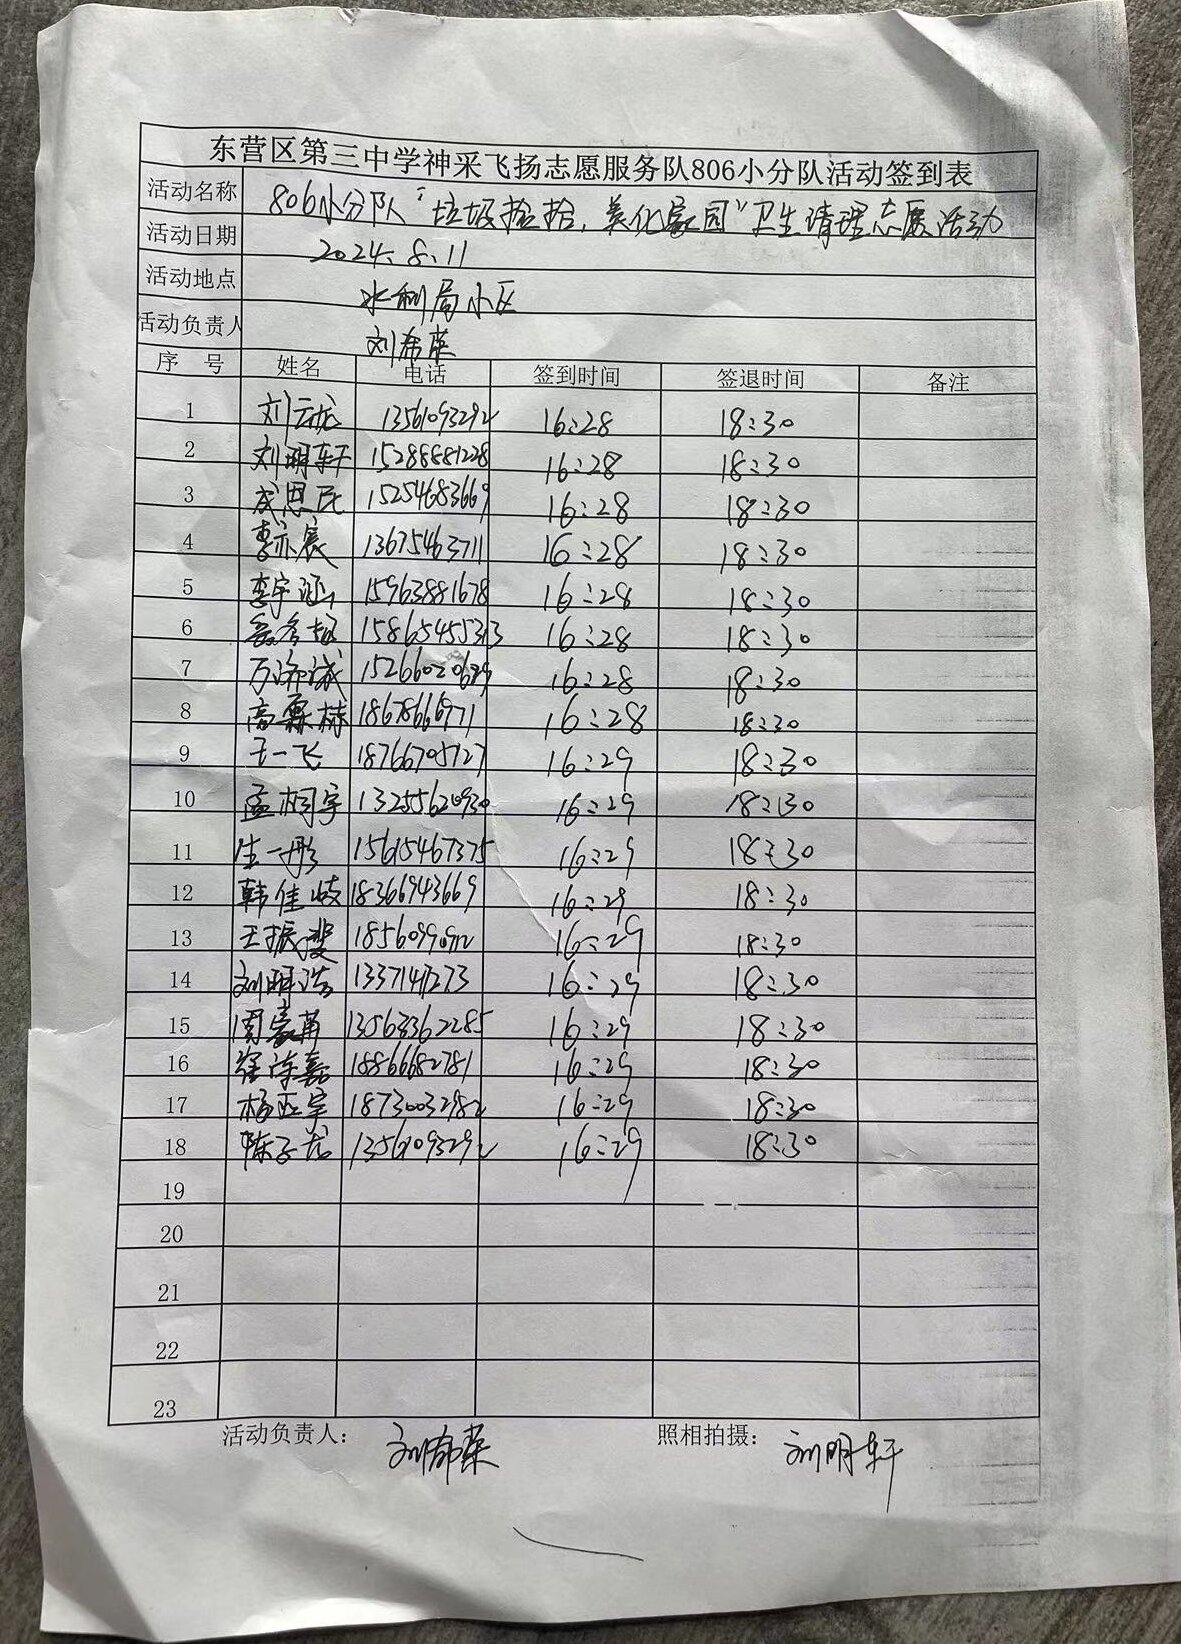 东营区第三中学神采飞扬志愿服务队806小分队活动签到表
活动名称 806小分队“垃圾捡拾，美化家园”卫生清理志愿活动
活动日期 2024.8.11
活动地点 水利局小区
活动负责人 刘希荣
序 号 姓名 电话 签到时间 签退时间 备注
1 刘云龙 13561093292 16:28 18:30
2 刘明轩 15288881228 16:28 18:30
3 成思民 15254683669 16:28 18:30
4 李亦宸 13675463711 16:28 18:30
5 李宇涵 15963881678 16:28 18:30
6 15865455313 16:28 18:30
7 万沛诚 16:28 18:30
8 高霖赫 16:28 18:30
9 王一飞 18766705727 16:29 18:30
10 孟桐宇 13255620930 16:29 18:30
11 生一彤 15615467375 16:29 18:30
12 韩佳岐 18366943669 16:29 18:30
13 王振斐 16:29 18:30
14 刘明浩 16:29 18:30
15 周家甫 13563362285 16:29 18:30
16 18866682781 16:29 18:30
17 杨正宇 18730032982 16:29 18:30
18 陈子龙 13561093292 16:29 18:30
19
20
21
22
23
活动负责人： 刘希荣 照相拍摄： 刘明轩